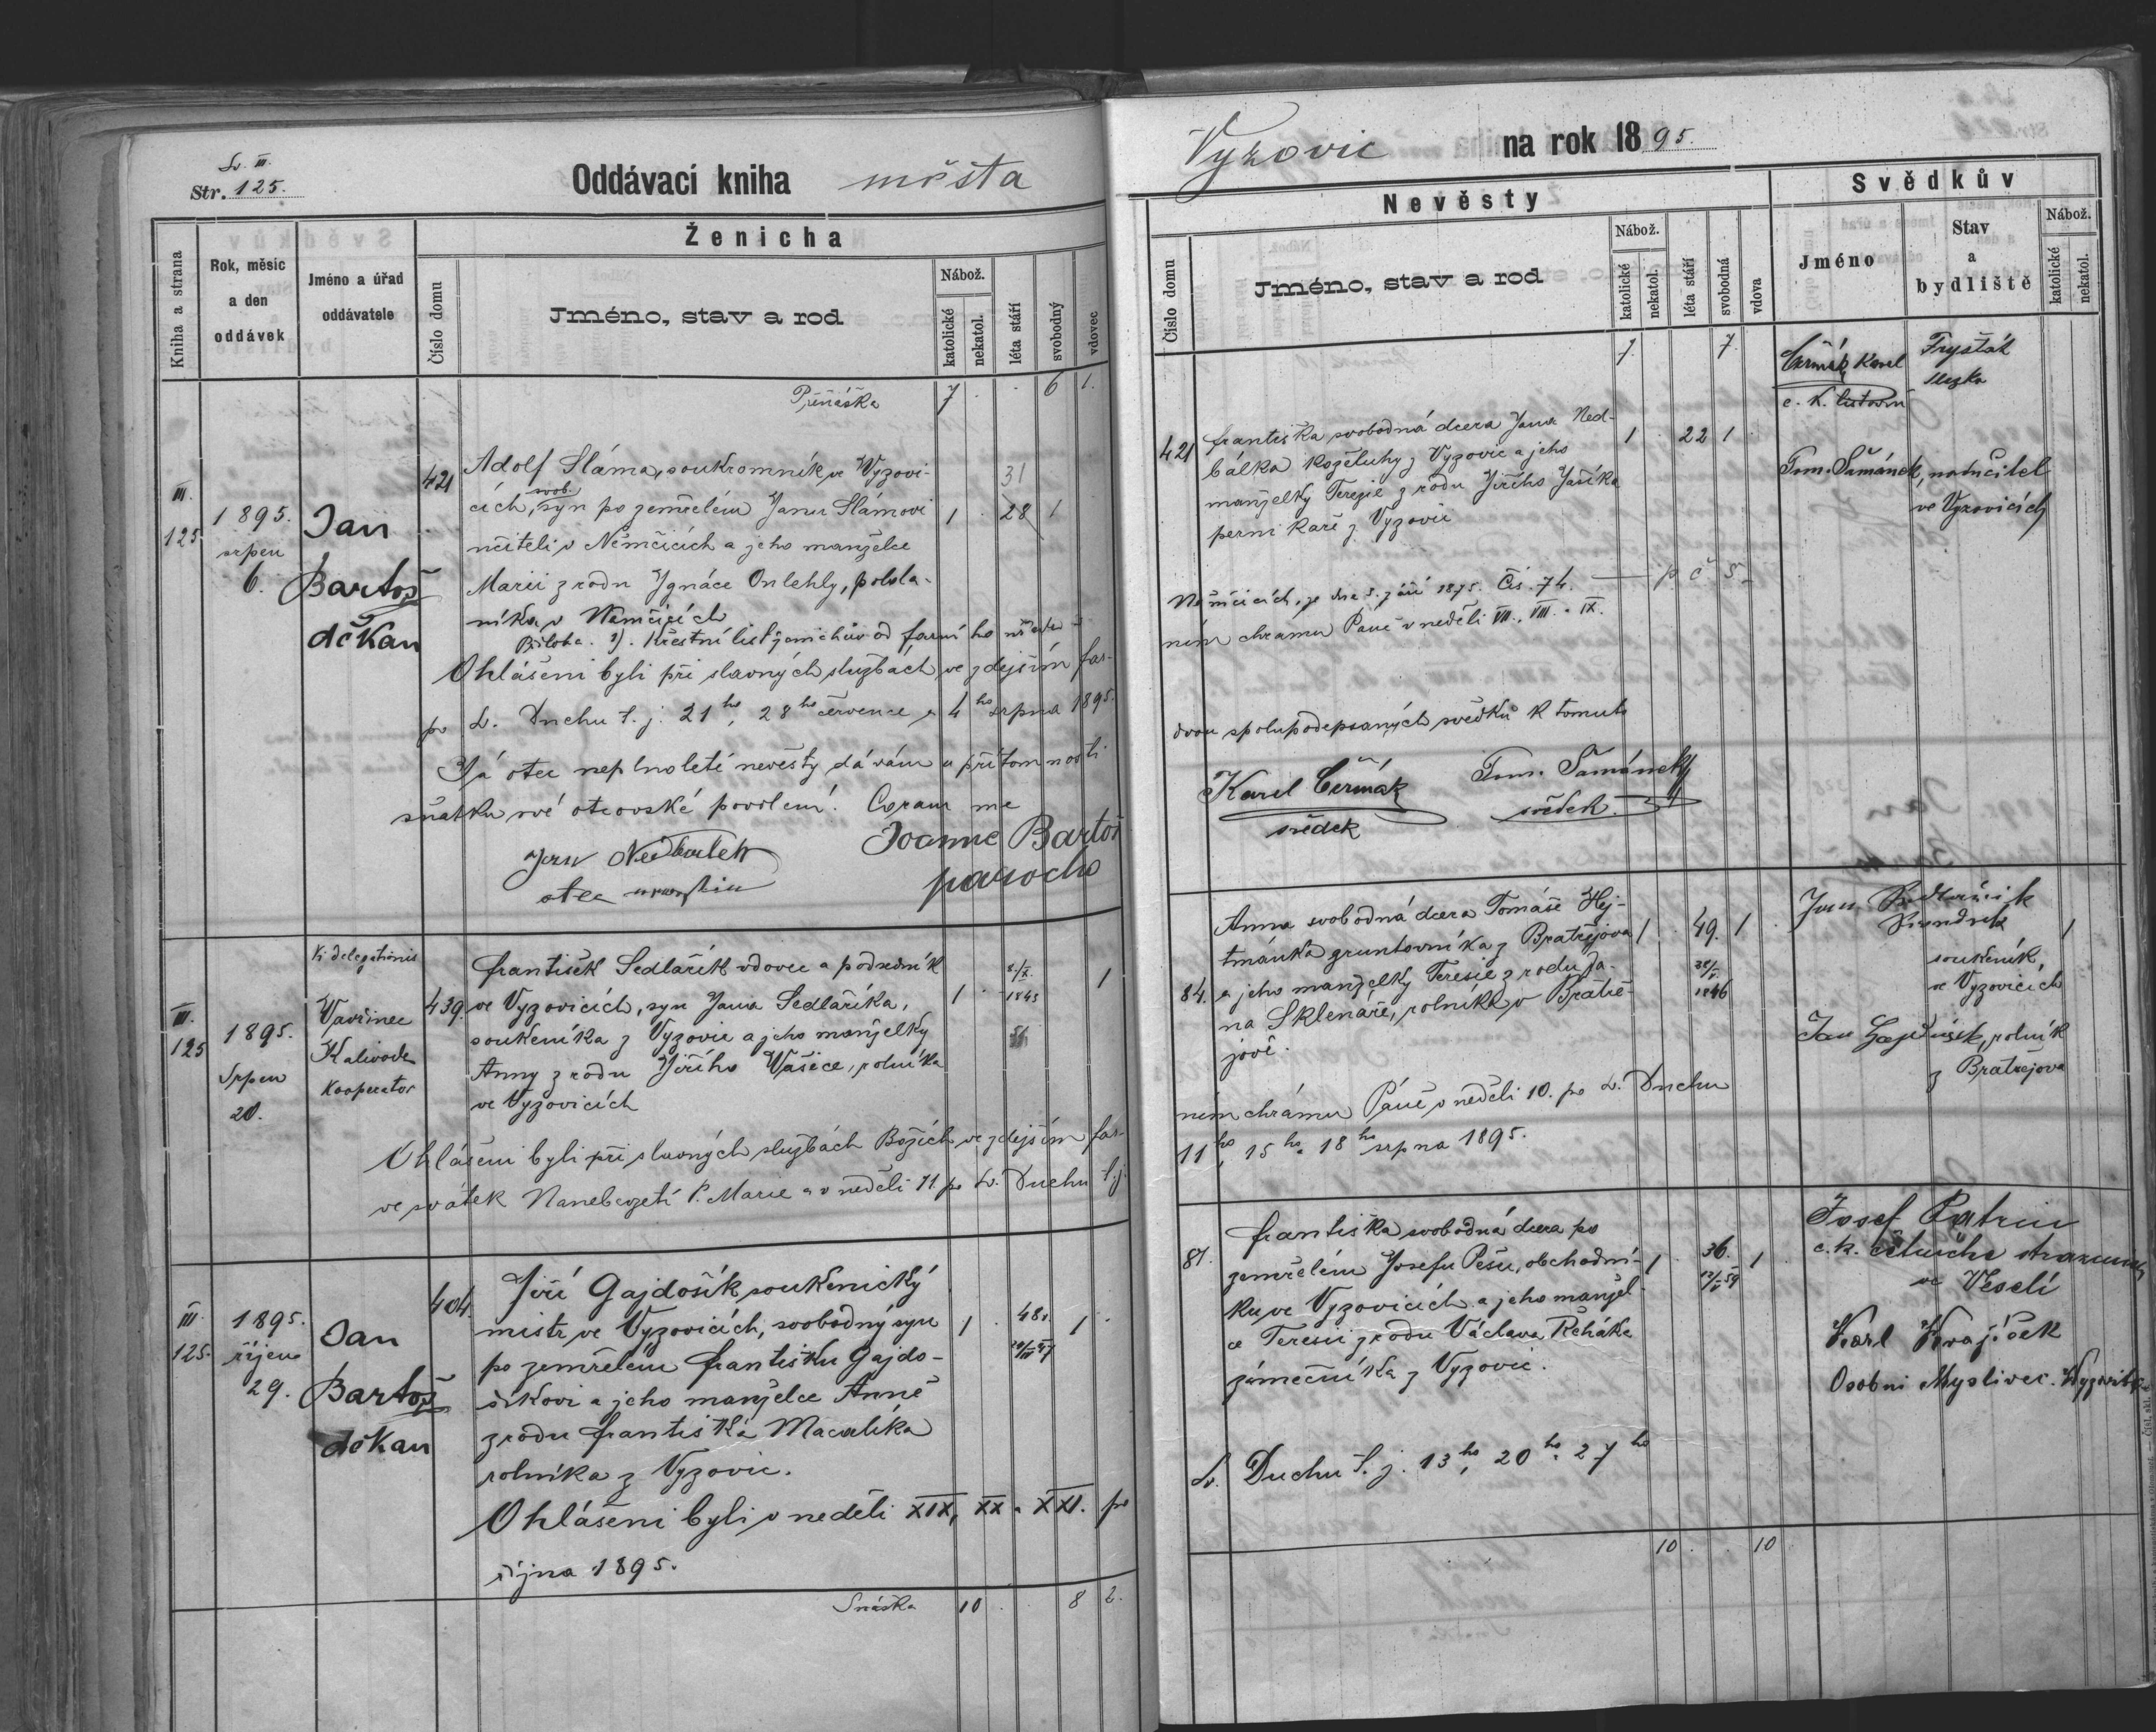 Sv. III.
Str. 125.
Oddávací kniha města
Kniha a strana
Rok, měsíc
a den
oddávek
Jméno a úřad
oddávatele
Ženicha
Číslo domu
Jméno, stav a rod
Nábož.
katolické
nekatol.
léta stáří
svobodný
vdovec
Přenáška 7 . . 6 1.
III.
125
1895.
srpen
6.
Jan
Bartoš
děkan
421
Adolf Sláma, soukromník ve Vyzovi-
svob.
cích, syn po zemřelém Janu Slámovi
učiteli v Němčicích a jeho manželce
Marii z rodu Ignáce Onlehly, polola-
níka v Němčicích
1 . 31
28 1
Příloha. 1). Křestní list ženichův od farního úřadu v
Ohlášeni byli při slavných službách ve zdejším far-
po sv. Duchu t. j. 21ho, 28ho července a 4ho srpna 1895.
Já otec neplnoleté nevěsty dávám u přítomnosti
sňatku své otcovské povolení. Coram me
Jan Nedbálek
otec
Joanne Bartoš
parocho
III.
125
1895.
Srpen
20.
Ex delegationis
Vavřinec
Kalivoda
kooperator
439.
František Sedlařík vdovec a podsedník
ve Vyzovicích, syn Jana Sedlaříka,
soukeníka z Vyzovic a jeho manželky
Anny z rodu Jiřího Vašice, rolníka
ve Vyzovicích
1
1845
1
Ohlášeni byli při slavných službách Božích ve zdejším far-
ve svátek Nanebevzetí P. Marie a v neděli 11. po sv. Duchu t. j.
III.
125.
1895.
říjen
29.
Jan
Bartoš
děkan
404.
Jiří Gajdošík soukenický
mistr ve Vyzovicích, svobodný syn
po zemřelém Františku Gajdo-
šíkovi a jeho manželce Anně
z rodu Františka Macalíka
rolníka z Vyzovic.
1 . 48. 1 .
Ohlášeni byli v neděli XIX, XX a XXI. po
října 1895.
Snáška 10 . . 8 2.
Vyzovic na rok 1895.
Nevěsty
Číslo domu
Jméno, stav a rod
Nábož.
katolické
nekatol.
léta stáří
svobodná
vdova
Svědkův
Jméno
Stav
a
bydliště
Nábož.
katolické
nekatol.
7. 7.
Čermák Karel
c. k.
Fryšták
421
Františka svobodná dcera Jana Ned-
bálka koželuhy z Vyzovic a jeho
manželky Terezie z rodu Jiřího Jašíka
pernikaře z Vyzovic
1 . 22 1
Tom. Šamánek, nadučitel
ve Vyzovicích
Němčicích, ze dne 5. září 1895. Čís. 74. — p. č. 5.
ním chramu Páně v neděli VII., VIII. a IX.
dvou spolupodepsaných svědků k tomuto
Karel Čermák
svědek
Tom. Šamánek
svědek.
84.
Anna svobodná dcera Tomáše Hej-
tmánka gruntovníka z Bratřejova
a jeho manželky Teresie z rodu Ja-
na Sklenáře, rolníka v Bratře-
jově.
1 . 49. 1
1846
Jan Sedlařík
soukeník,
ve Vyzovicích
1
Jan Gajdůšek, rolník
z Bratřejova
ním chrámu Páně v neděli 10. po sv. Duchu
11ho, 15ho a 18ho srpna 1895.
87.
Františka svobodná dcera po
zemřelém Josefu Pešu, obchodní-
ku ve Vyzovicích a jeho manžel-
ce Teresii z rodu Václava Řeháka
zámečníka z Vyzovic.
1 . 36. 1
Josef Patrin
c. k.
ve Veselí
Karl Krajíček
Osobní Myslivec.
sv. Duchu t. j. 13ho, 20ho a 27ho
10 . . 10